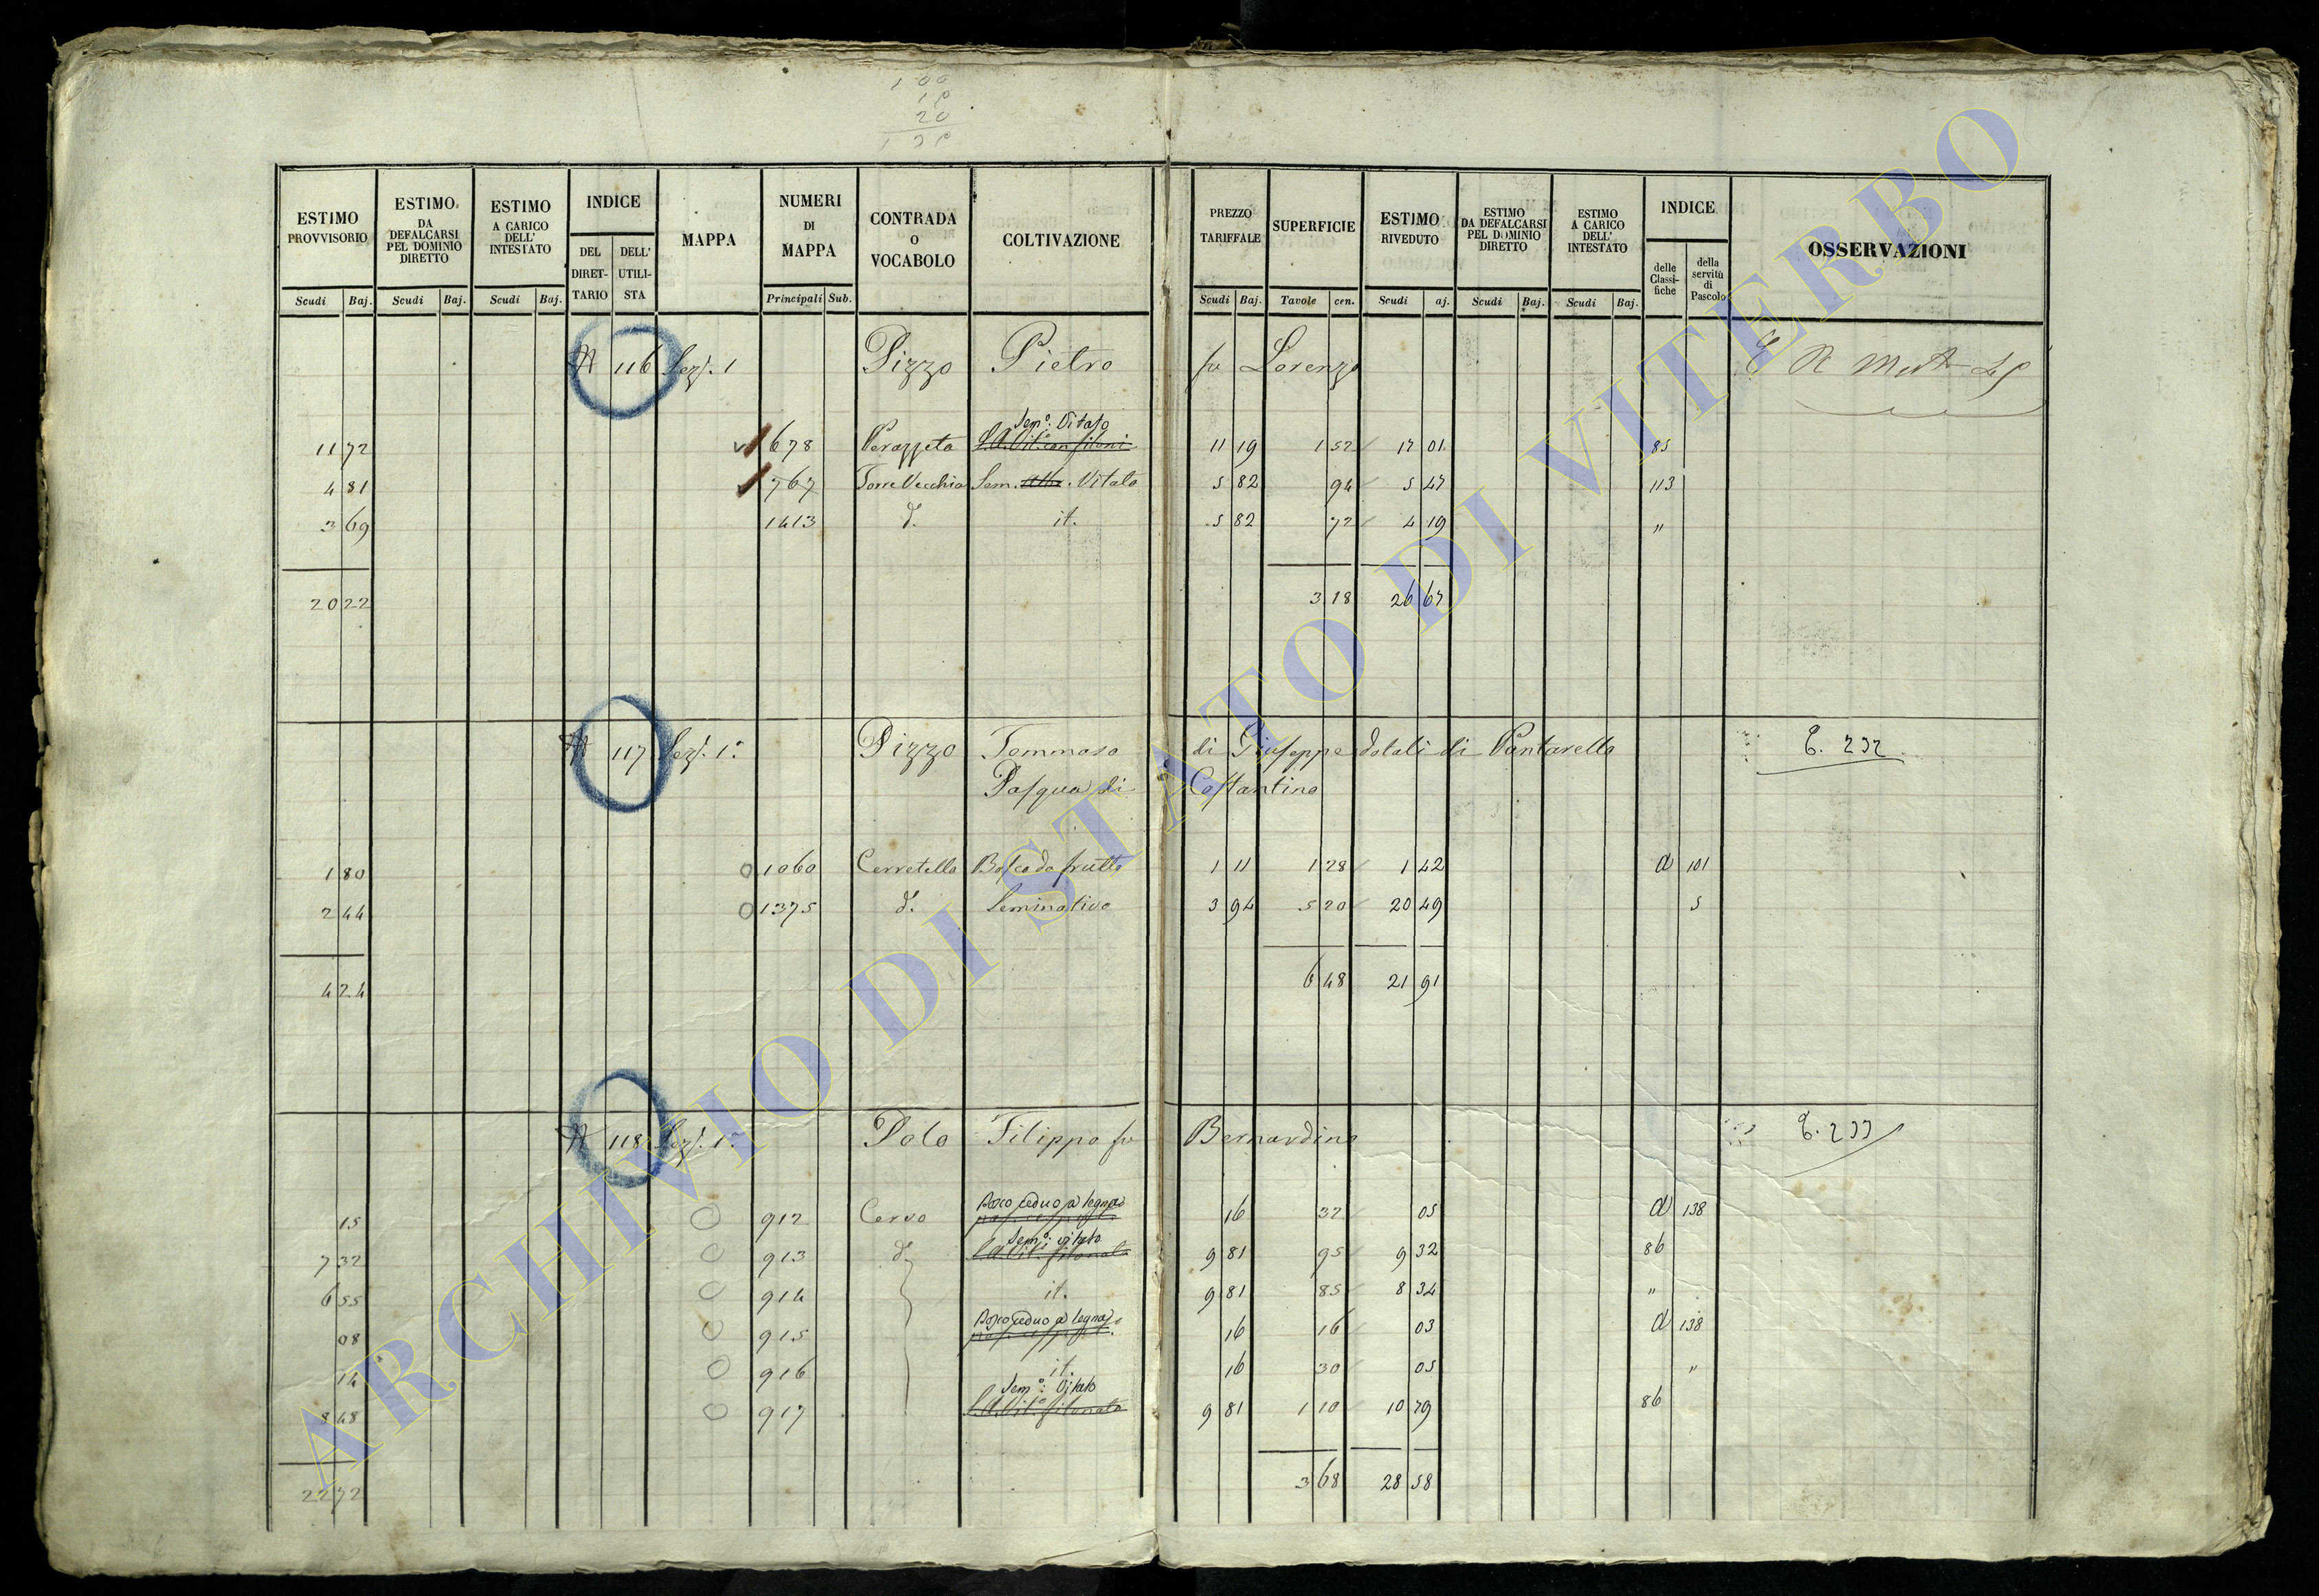 1 00
20
ESTIMO PROVVISORIO
ESTIMO DA DEFALCARSI PEL DOMINIO DIRETTO
ESTIMO A CARICO DELL' INTESTATO
INDICE
DEL DIRET-TARIO
DELL' UTILI-STA
MAPPA
NUMERI DI MAPPA
CONTRADA O VOCABOLO
COLTIVAZIONE
PREZZO TARIFFALE
SUPERFICIE
ESTIMO RIVEDUTO
ESTIMO DA DEFALCARSI PEL DOMINIO DIRETTO
ESTIMO A CARICO DELL' INTESTATO
INDICE
delle Classi-fiche
della servitù di Pascolo
OSSERVAZIONI
Scudi Baj. Scudi Baj. Scudi Baj. Principali Sub. Scudi Baj. Tavole cen. Scudi aj. Scudi Baj. Scudi Baj.
116 Sez. 1 Pizzo Pietro fu Lorenzo
Sem.o Vitato
11 72 678 Perazzeta 11 19 1 52 17 01 85
4 81 767 Torre Vecchia Sem. Vitato 5 82 94 5 47 113
3 69 1413 d. it. 5 82 72 4 19 "
20 22 3 18 26 67
117 Sez. 1.a Pizzo Tommaso di Giuseppe dotali di Pantarella 232
Pasqua di Costantino
1 80 1060 Cerretello Bosco da frutto 1 11 1 28 1 42 a 101
2 44 1375 d. Seminativo 3 94 5 20 20 49 5
4 24 6 48 21 91
118 Sez. 1.a Polo Filippo fu Bernardino 233
Bosco ceduo a legna
15 912 Cervo 16 32 05 a 138
Sem.o vitato
7 32 913 d. 9 81 95 9 32 86
6 55 914 it. 9 81 85 8 34 "
Bosco ceduo a legna
08 915 16 16 03 a 138
14 916 it. 16 30 05 "
Sem.o Vitato
8 48 917 9 81 1 10 10 79 86
22 72 3 68 28 58
ARCHIVIO DI STATO DI VITERBO